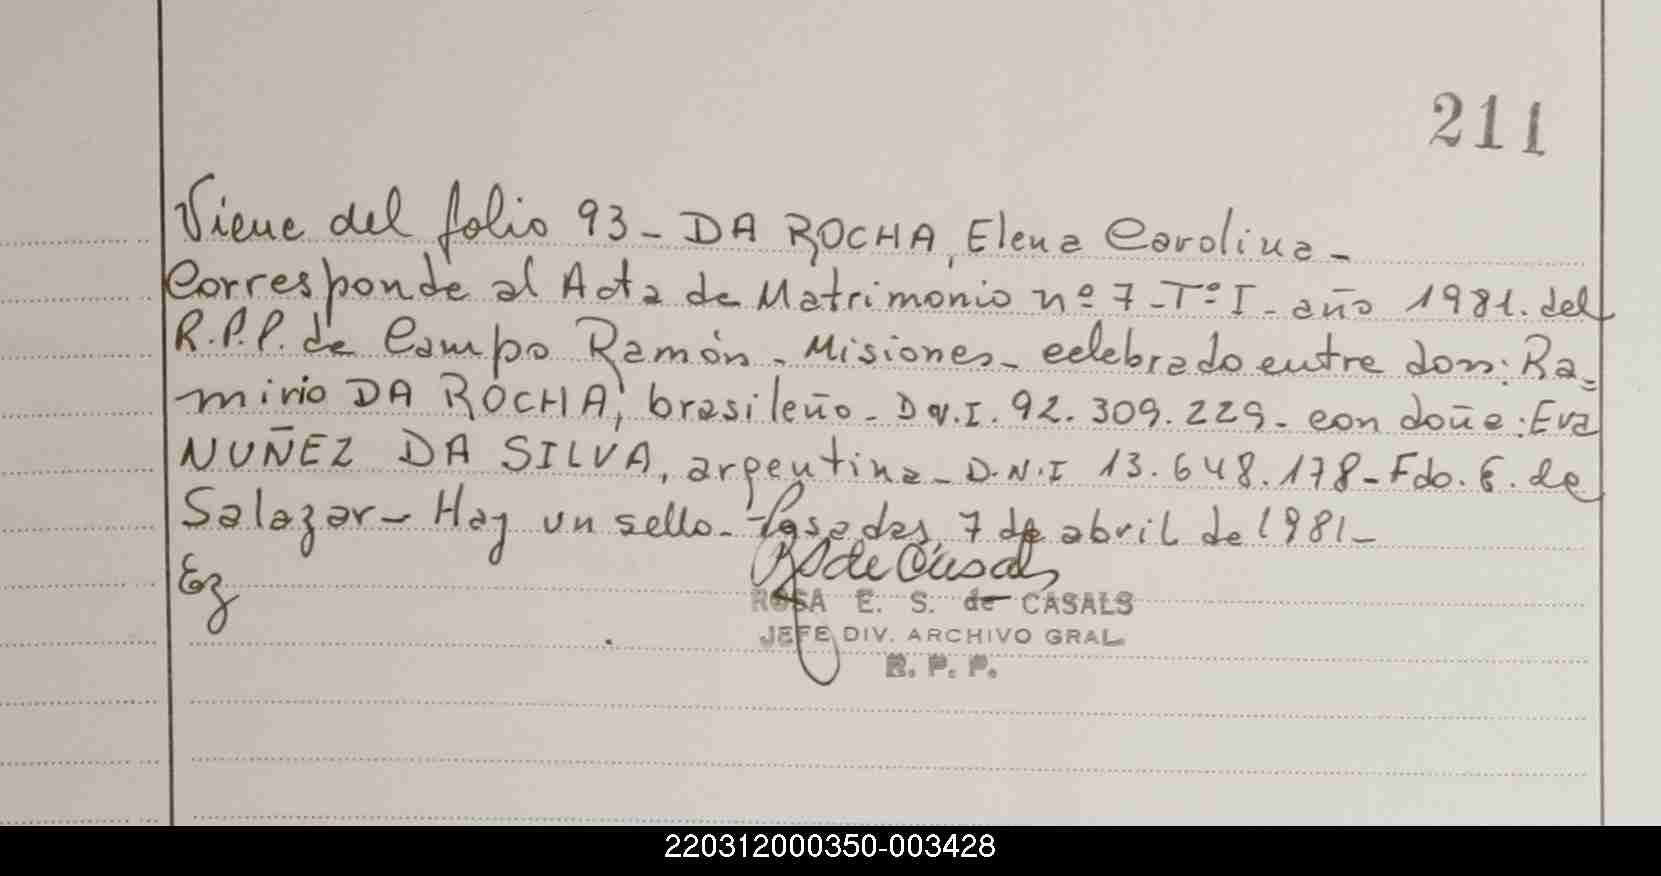 211
Viene del folio 93 - DA ROCHA, Elena Carolina -
Corresponde al Acta de Matrimonio nº 7 - Tº I - año 1981. del
R.P.P. de Campo Ramón - Misiones - celebrado entre don: Ra=
mirio DA ROCHA, brasileño - D.N.I. 92.309.229 - con doña: Eva
NUÑEZ DA SILVA, argentina - D.N.I 13.648.178 - Fdo. E. de
Salazar - Hay un sello - Posadas, 7 de abril de 1981 -
Ez
ROSA E. S. de CASALS
JEFE DIV. ARCHIVO GRAL.
R. P. P.
220312000350-003428